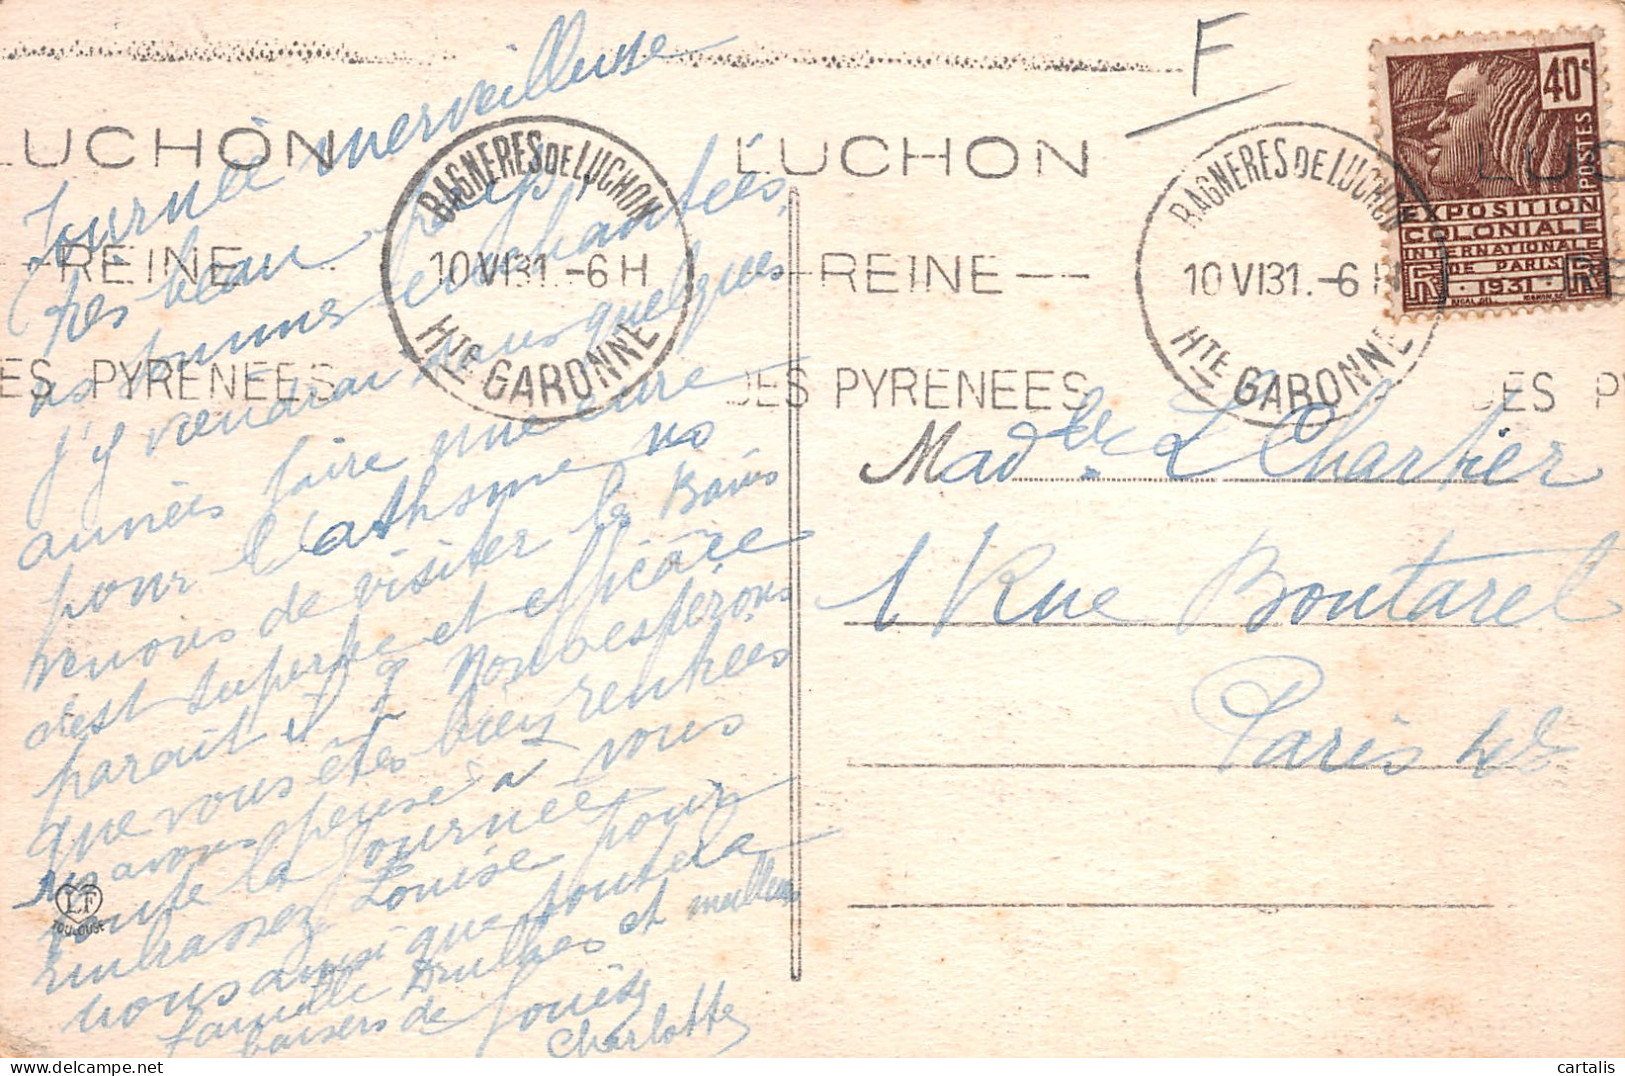 F
LUCHON
REINE
DES PYRENEES
BAGNERES DE LUCHON
10 VI 31. -6 H
Hte GARONNE
LUCHON
REINE
DES PYRENEES
BAGNERES DE LUCHON
10 VI 31. -6 H
Hte GARONNE
LUC
DES P
40c
POSTES
EXPOSITION
COLONIALE
INTERNATIONALE
DE PARIS
RF 1931 RF
Journée merveilleuse
très beau pays,
ns sommes enchantées,
j'y viendrai dans quelques
années faire une cure
pour l'athsme ns
venons de visiter les Bains
c'est superbe et efficace
parait il Nous espérons
que vous êtes bien rentrées
ns avons pensé à vous
toute la journée
Embrassez Louise pour
nous ainsi que toute la
famille et meilleurs
baisers de Louise
Charlotte
LF
TOULOUSE
Madlle. L Chartier
1 Rue Boutarel
Paris 4e
© cartalis sur www.delcampe.net